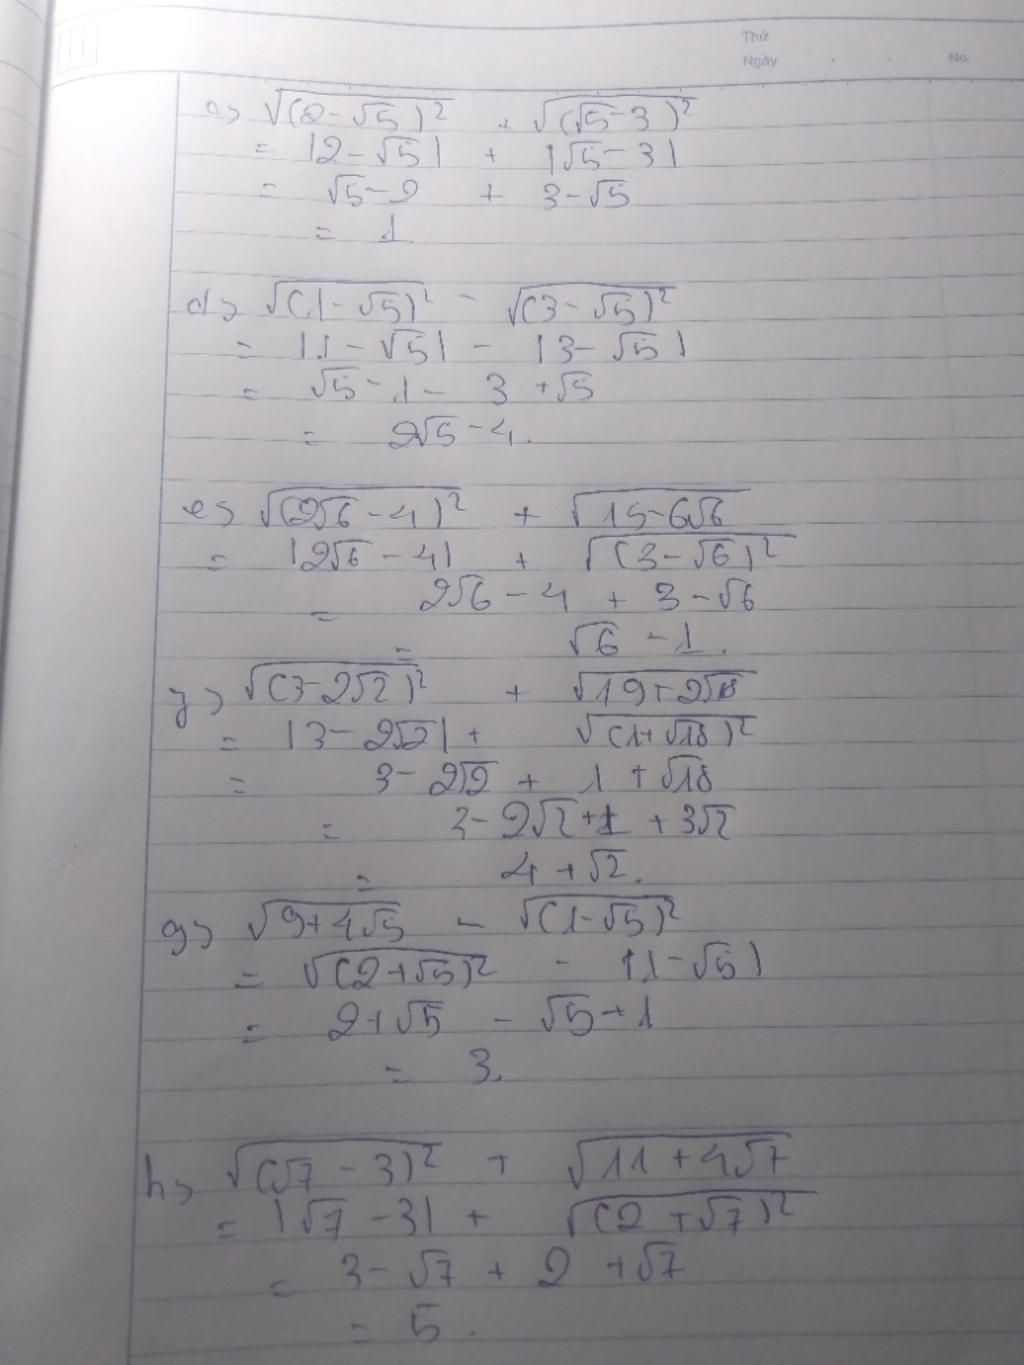 Thứ
Ngày
No.
c) √(2-√5)² + √(√5-3)²
= |2-√5| + |√5-3|
= √5-2 + 3-√5
= 1
d) √(1-√5)² - √(3-√5)²
= |1-√5| - |3-√5|
= √5-1- 3 +√5
= 2√5-4.
e) √(2√6-4)² + √15-6√6
= |2√6-4| + √(3-√6)²
= 2√6-4 + 3-√6
= √6-1.
f) √(3-2√2)² + √19+2√18
= |3-2√2| + √(1+√18)²
= 3-2√2 + 1+√18
= 3-2√2+1 + 3√2
= 4+√2.
g) √9+4√5 - √(1-√5)²
= √(2+√5)² - |1-√5|
= 2+√5 - √5+1
= 3.
h) √(√7-3)² + √11+4√7
= |√7-3| + √(2+√7)²
= 3-√7 + 2 +√7
= 5.